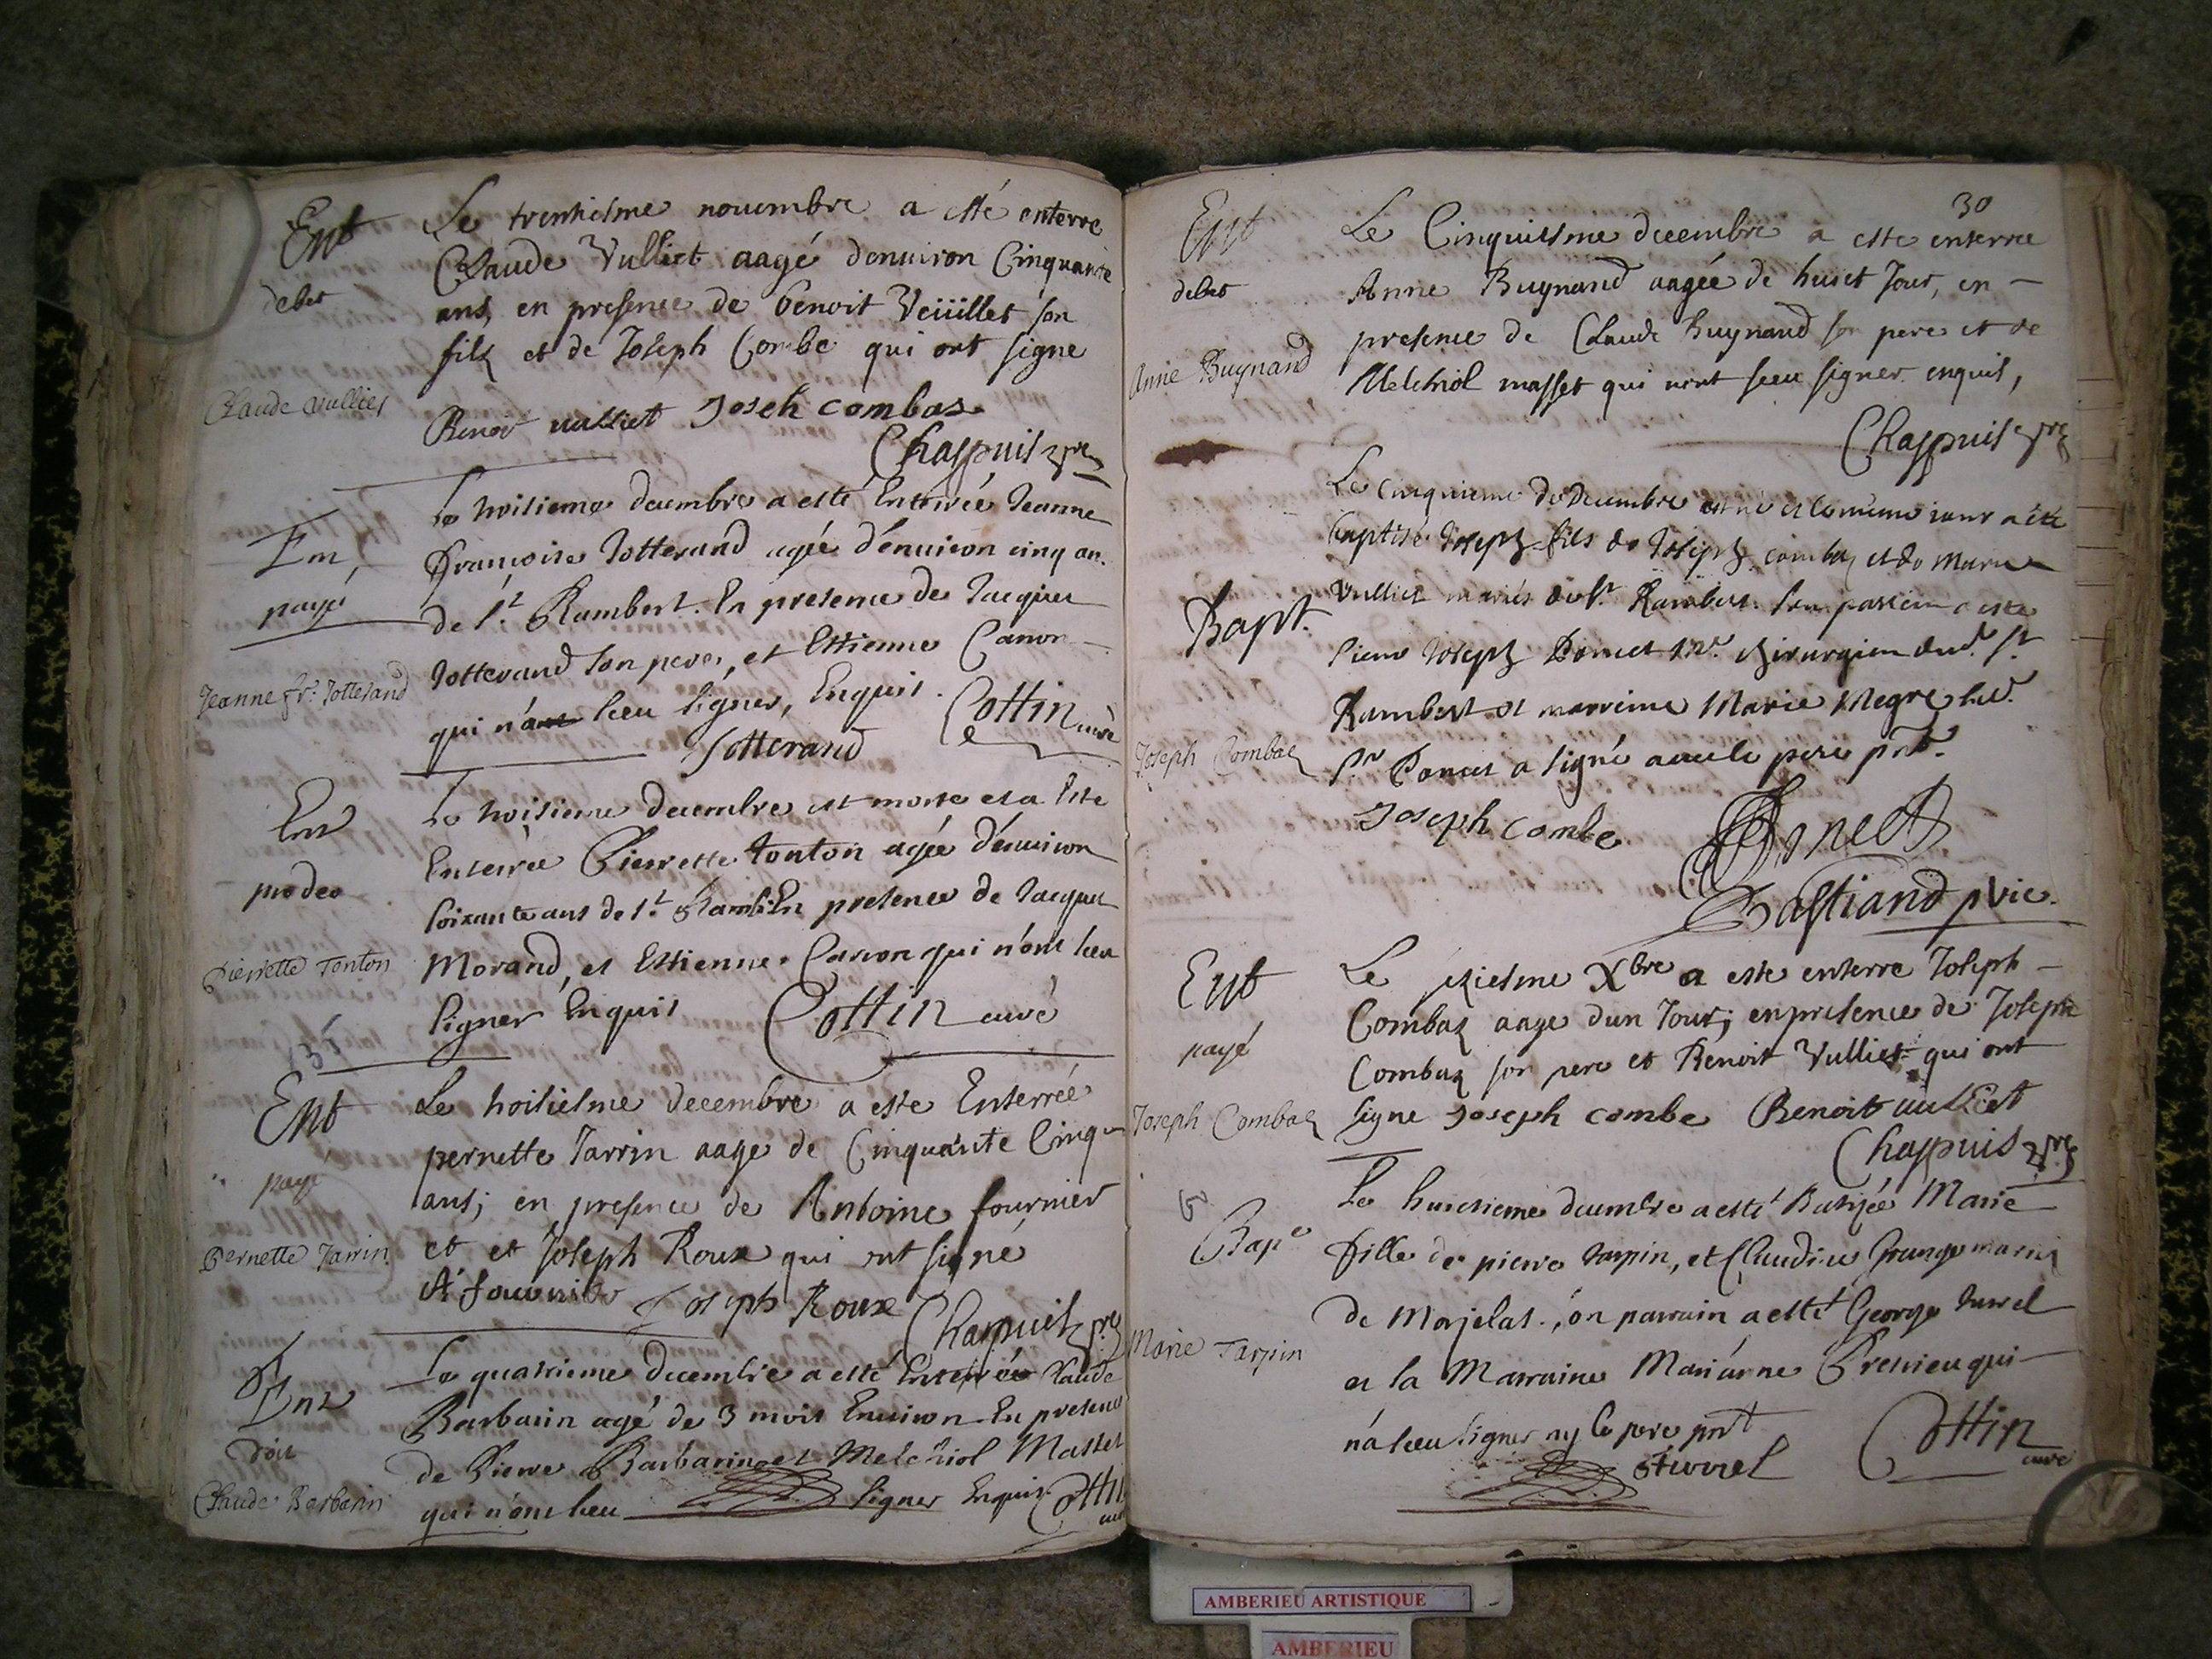 Ent
debet
Claude Vulliet
Le trentiesme nouembre a esté enterre
Claude Vulliet aagé denuiron Cinquante
ans, en presence de benoit Veüillet son
filz et de Joseph Combe qui ont signe
Benoit vulliet Joseh combas
Chappuis
Ent
payé
Jeanne fr. Jotterand
Le troisieme decembre a esté Enterrée Jeanne
Françoise Jotterand agée d'enuiron cinq an.
de St. Rambert. En presence de Jacques
Jotterand son pere, et Estienne Carron
qui n'a sceu signer, Enquis.
Jotterand Cottin curé
Ent
pro deo
Pierrette Tonton
Le troisieme decembre est morte et a este
Enterrée Pierrette tonton agée d'enuiron
soixante ans de St. Ramb. En presence de Jacques
Morand, et Estienne Carron qui n'ont sceu
signer Enquis Cottin curé
35
Ent
payé
Pernette Tarrin
Le troisiesme decembre a este Enterrée
pernette Tarrin aage de Cinquante Cinq
ans; en presence de Antoine fournier
et et Joseph Roux qui ont signé
A fournier Joseph Roux Chappuis
Ent
doit
Claude Barbarin
Le quatrieme decembre a esté Enterrée Claude
Barbarin agé de 3 mois Enuiron En presence
de Pierre Barbarin et Melchiol Masset
qui n'ont sceu signer Enquis Cottin
30
Ent
debet
Anne Buynand
Le Cinquiesme decembre a este enterree
Anne Buynand aagée de huict Jour, en
presence de Claude Buynand son pere et de
Melchiol masset qui n'ont sceu signer enquis,
Chappuis
Bapt.
Joseph Combaz
Le cinquieme de decembre est né et le meme jour a été
baptisé Joseph fils de Joseph combaz et de Marie
Vulliet mariés de St. Rambert. Son parrein a este
Pierre Joseph Poncet chirurgien dud. St
Rambert et marreine Marie Megre
Sr Poncet a signé auec le pere pnt.
Joseph combe Poncet
Bastiand pvic.
Ent
payé
Joseph Combaz
Le sixiesme Xbre a este enterre Joseph
Combaz aage dun Jour; en presence de Joseph
Combaz son pere et Benoit Vulliet qui ont
signe Joseph combe Benoit vulliet
Chappuis
Bap
Marie Tarpin
Le huictieme decembre a esté Batizée Marie
fille de pierre tarpin, et Claudine Grange mariés
de Morjelas., on parrain a esté George turrel
et la Marraine Mariane Pressieu qui
n'a sceu signer ny le pere pnt
turrel Cottin
curé
AMBERIEU ARTISTIQUE
AMBERIEU